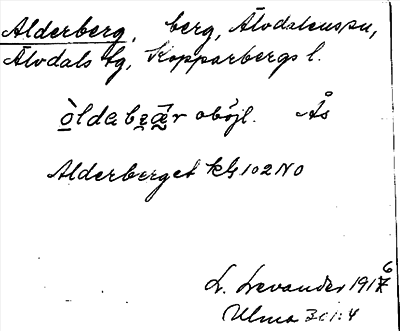 Alderberg, berg, Älvdalens sn,
Älvdals tg, Kopparbergs l.
òldabeær oböjl. Ås
Alderberget kG102NO
L. Levander 1916
Ulma 3:1:4